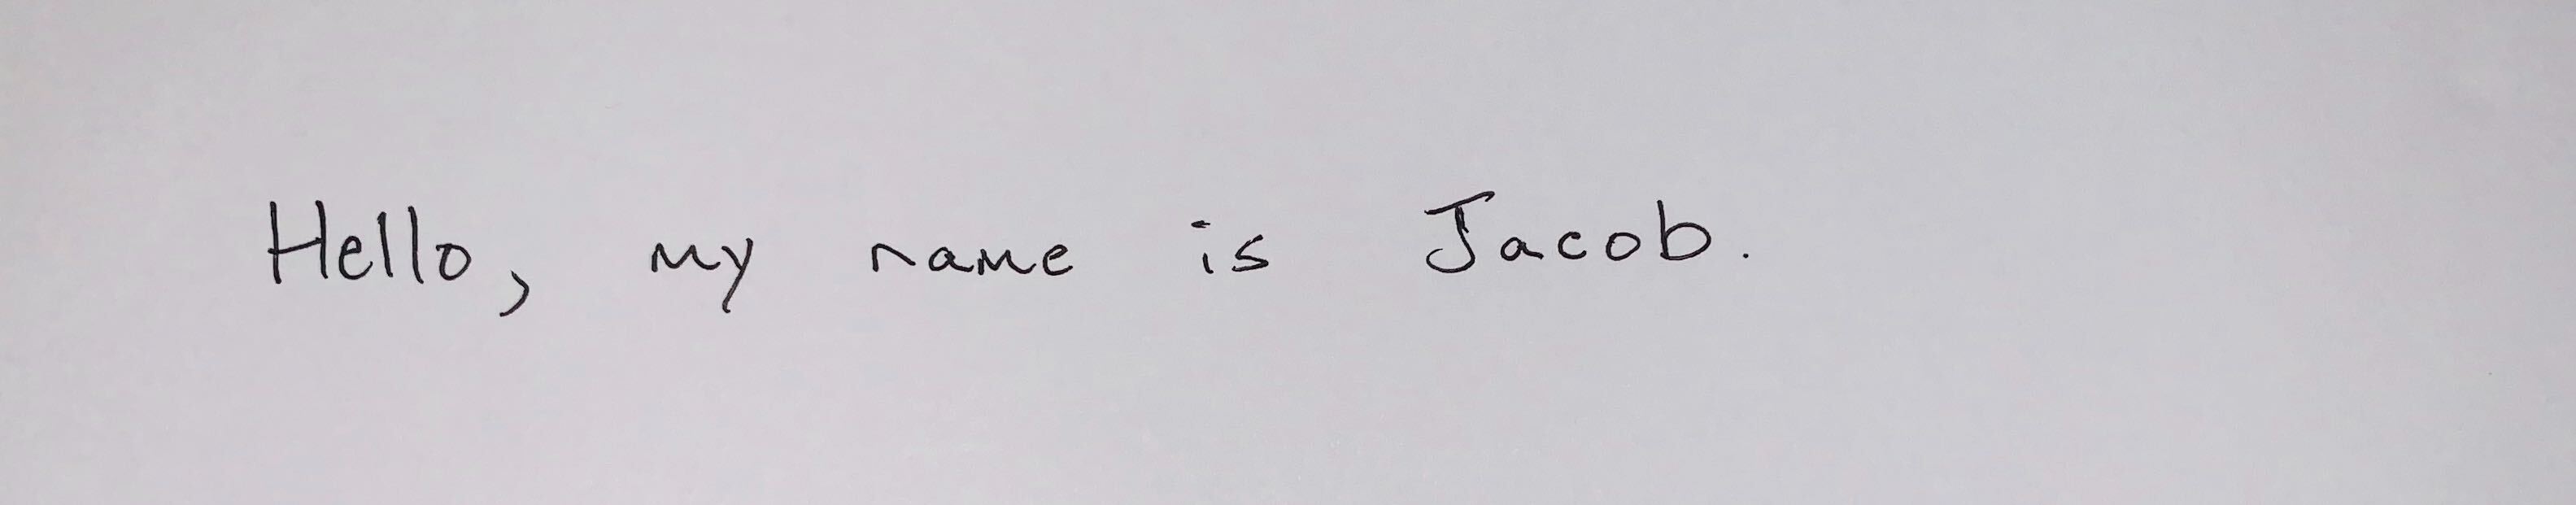 Hello, my name is Jacob.